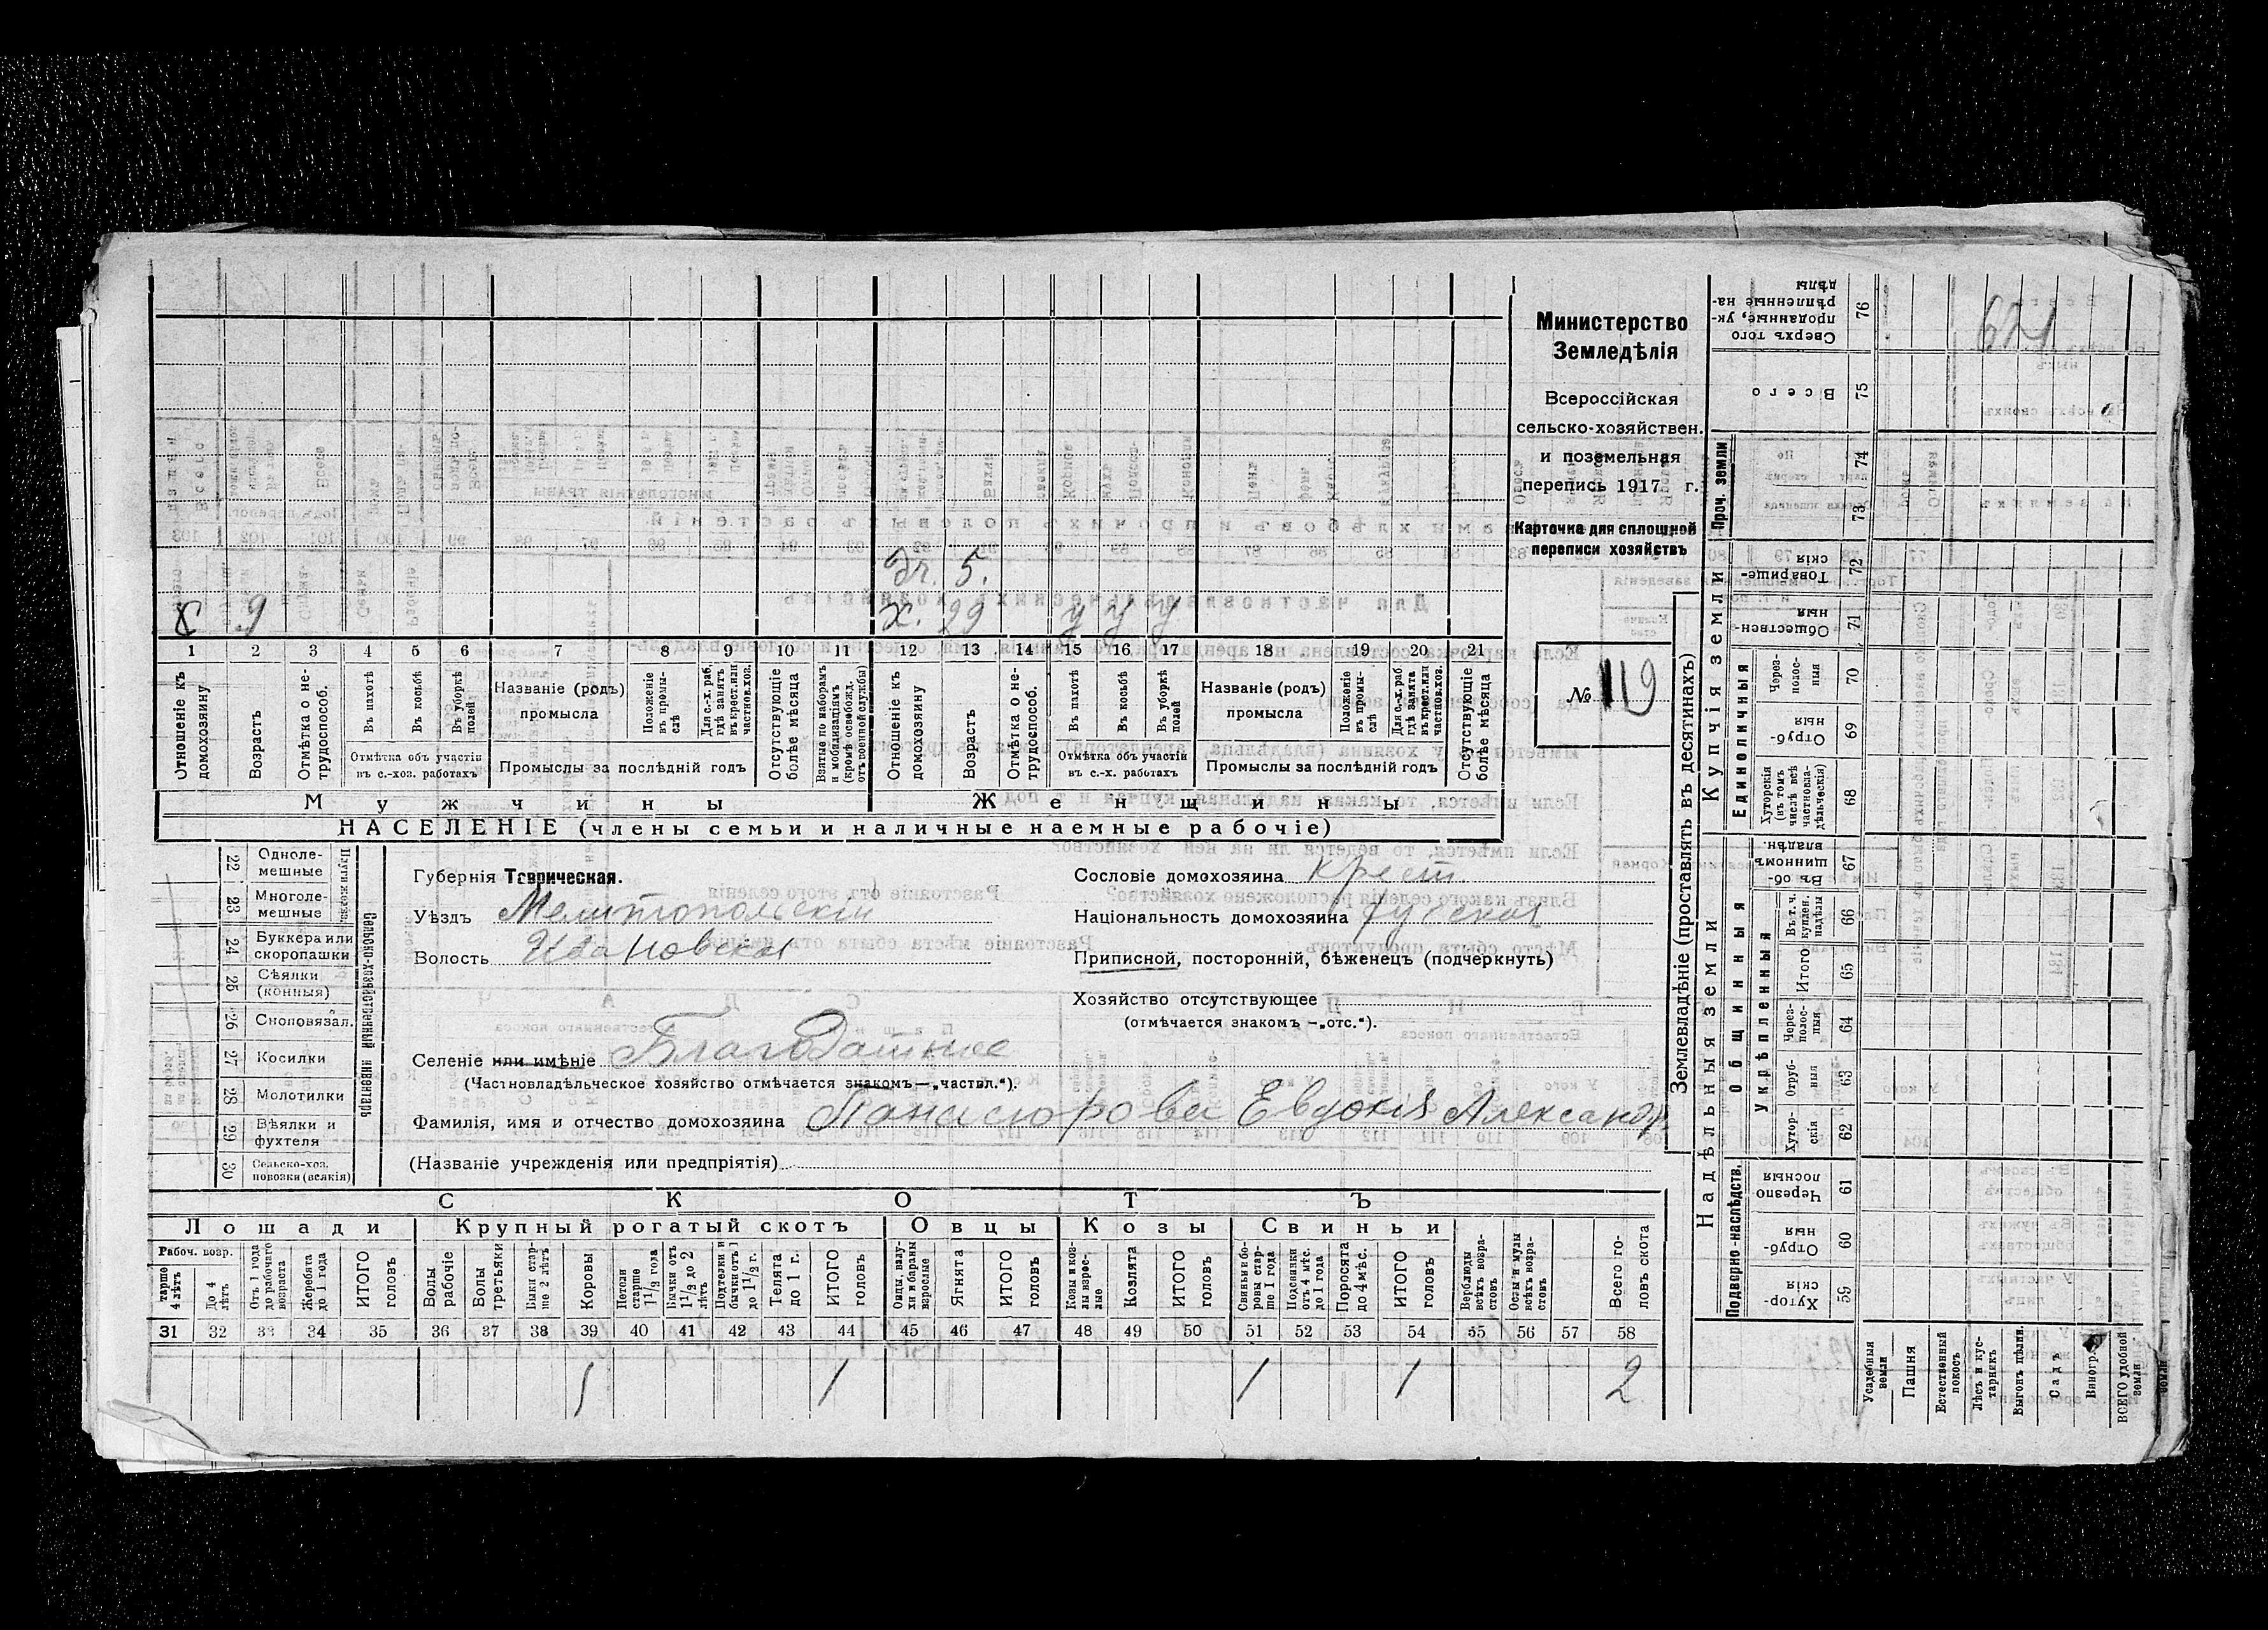 Министерство
Земледѣлія
Всероссійская
сельско-хозяйствен.
и поземельная
перепись 1917 г.
Карточка для сплошной
переписи хозяйствъ
№ 119
671
Дч. 5.
9
Х. 29 у у у
1 2 3 4 5 6 7 8 9 10 11 12 13 14 15 16 17 18 19 20 21
Отношеніе къ домохозяину
Возрастъ
Отмѣтка о не-трудоспособ.
Въ пахотѣ
Въ косьбѣ
Въ уборкѣ полей
Отмѣтка объ участіи
въ с.-хоз. работахъ
Названіе (родъ)
промысла
Положеніе въ промы-слѣ
Для с.-х. раб, гдѣ занятъ въ крест. или частнов. хоз.
Промыслы за послѣдній годъ
Отсутствующіе болѣе мѣсяца
Взятые по наборамъ и мобилизаціямъ (кромѣ освобожд. отъ военной службы)
Отношеніе къ домохозяину
Возрастъ
Отмѣтка о не-трудоспособ.
Въ пахотѣ
Въ косьбѣ
Въ уборкѣ полей
Отмѣтка объ участіи
въ с.-х. работахъ
Названіе (родъ)
промысла
Положеніе въ промы-слѣ
Для с.-х. раб гдѣ занята въ крест. или частнов. хоз.
Промыслы за послѣдній годъ
Отсутствующіе болѣе мѣсяца
Мужчины Женщины
НАСЕЛЕНІЕ (члены семьи и наличные наемные рабочіе)
22 Одноле-мешные
23 Многоле-мешные
24 Буккера или скоропашки
25 Сѣялки (конныя)
26 Сноповязал.
27 Косилки
28 Молотилки
29 Вѣялки и фухтеля
30 Сельско-хоз. повозки (всякія)
Сельско-хозяйственный инвентарь
Губернія Таврическая.
Уѣздъ Мелитопольскій
Волость Ивановская
Селеніе или имѣніе Благодатное
(Частновладѣльческое хозяйство отмѣчается знакомъ—„частвл.“).
Фамилія, имя и отчество домохозяина Панасюрова Евдокія Александр.
(Названіе учрежденія или предпріятія)
Сословіе домохозяина Крест
Національность домохозяина русская
Приписной, посторонній, бѣженецъ (подчеркнуть)
Хозяйство отсутствующее
(отмѣчается знакомъ —„отс.“).
СКОТЪ
Лошади Крупный рогатый скотъ Овцы Козы Свиньи
Рабоч. возр.
тарше 4 лѣтъ
До 4 лѣтъ
Отъ 1 года до рабочаго возраста
Жеребята до 1 года
ИТОГО головъ
Волы рабочіе
Волы третьяки
Быки стар-ше 2 лѣтъ
Коровы
Нетели старше 1½ года
Бычки отъ 1½ до 2 лѣтъ
Подтелки и бычки отъ 1 до 1½ г.
Телята до 1 г.
ИТОГО головъ
Овцы, валу-хи и бараны взрослые
Ягнята
ИТОГО головъ
Козы и коз-лы взрос-лые
Козлята
ИТОГО головъ
Свиньи и бо-ровы стар-ше 1 года
Подсвинки отъ 4 мѣс. до 1 года
Поросята до 4 мѣс.
ИТОГО головъ
Верблюды всѣхъ возра-стовъ
Ослы и мулы всѣхъ возра-стовъ
Всего го-ловъ скота
31 32 33 34 35 36 37 38 39 40 41 42 43 44 45 46 47 48 49 50 51 52 53 54 55 56 57 58
1 1 1 1 2
Землевладѣніе (проставлять въ десятинахъ)
Надѣльныя земли
Купчія земли
Подворно-наслѣдств.
Общинныя
Укрѣпленныя
Единоличныя
Проч. земли
59 Хутор-скія
60 Отруб-ныя
61 Черезпо-лосныя
62 Хутор-скія
63 Отруб-ныя
64 Через-полос-ныя
65 Итого
66 Въ т. ч. куплен. надѣлы
67 Въ об-щинномъ владѣн.
68 Хуторскія (въ томъ числѣ всѣ частновла-дѣльческія)
69 Отруб-ныя
70 Через-полос-ныя
71 Обществен-ныя
72 Товарище-скія
73
74
75 Всего
76 Сверхъ того проданные, ук-рѣпленные на-дѣлы
Усадебныя земли
Пашня
Естественный покосъ
Лѣсъ и кус-тарникъ
Выгонъ цѣлин.
Садъ
Виногр.
ВСЕГО удобной земли